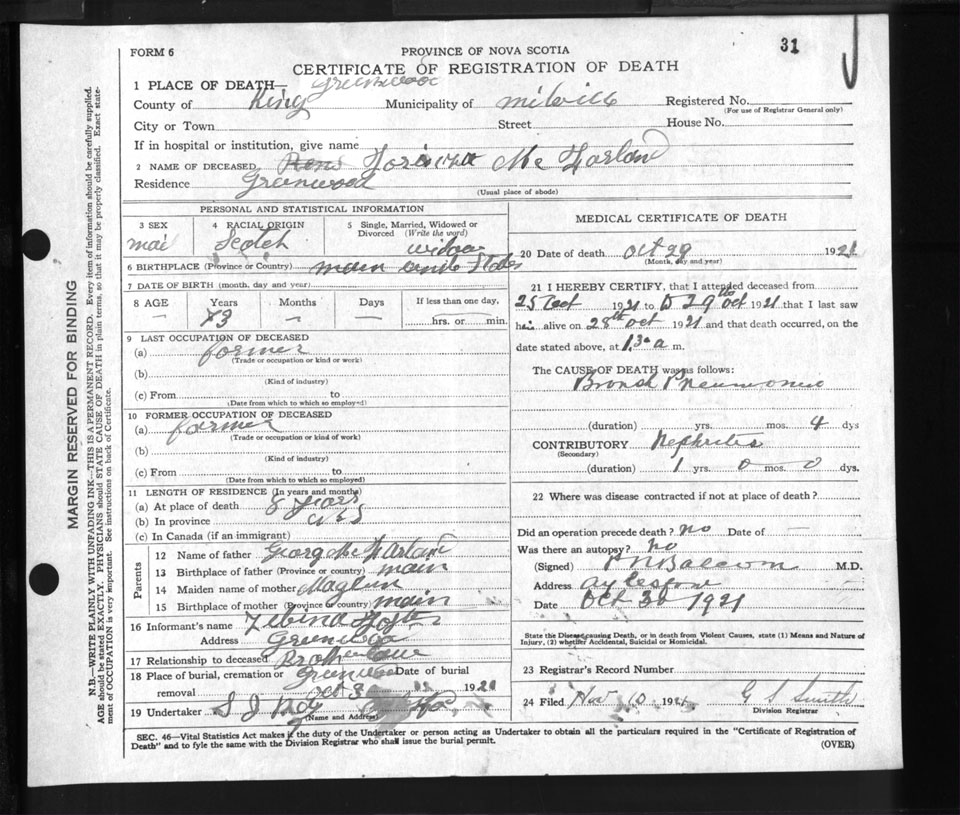 31
FORM 6
PROVINCE OF NOVA SCOTIA
CERTIFICATE OF REGISTRATION OF DEATH
1 PLACE OF DEATH— Greenwood
County of King Municipality of Milvill Registered No.
(For use of Registrar General only)
City or Town Street House No.
If in hospital or institution, give name
2 NAME OF DECEASED Mc Farland
Residence Greenwood
(Usual place of abode)
PERSONAL AND STATISTICAL INFORMATION
3 SEX 4 RACIAL ORIGIN 5 Single, Married, Widowed or Divorced (Write the word)
mail Scotch widow
6 BIRTHPLACE (Province or Country) main States
7 DATE OF BIRTH (month, day and year)
8 AGE Years Months Days If less than one day,
— 73 — — hrs. or min.
9 LAST OCCUPATION OF DECEASED
(a) farmer
(Trade or occupation or kind or work)
(b)
(Kind of industry)
(c) From to
(Date from which to which so employed)
10 FORMER OCCUPATION OF DECEASED
(a) farmer
(Trade or occupation or kind of work)
(b)
(Kind of industry)
(c) From to
(Date from which to which so employed)
11 LENGTH OF RESIDENCE (In years and months)
(a) At place of death 8 years
(b) In province
(c) In Canada (if an immigrant)
Parents
12 Name of father Georg McFarland
13 Birthplace of father (Province or country) main
14 Maiden name of mother
15 Birthplace of mother (Province or country) main
16 Informant's name Foster
Address Greenwood
17 Relationship to deceased
18 Place of burial, cremation or removal Greenwood Date of burial Oct 3 1921
19 Undertaker
(Name and Address)
MEDICAL CERTIFICATE OF DEATH
20 Date of death Oct 29 1921
(Month, day and year)
21 I HEREBY CERTIFY, that I attended deceased from
25 Oct 1921 to 29th Oct 1921 that I last saw
him alive on 28th Oct 1921 and that death occurred, on the
date stated above, at a m.
The CAUSE OF DEATH was as follows:
Bronch Pneumonia
(duration) yrs. mos. 4 dys
CONTRIBUTORY Nephrites
(Secondary)
(duration) 1 yrs. 0 mos. 0 dys.
22 Where was disease contracted if not at place of death?
Did an operation precede death? No Date of —
Was there an autopsy? No
(Signed) Balcom M.D.
Address Aylesford
Date Oct 30 1921
State the Disease causing Death, or in death from Violent Causes, state (1) Means and Nature of
Injury, (2) whether Accidental, Suicidal or Homicidal.
23 Registrar's Record Number
24 Filed Nov 10 1921 G S Smith
Division Registrar
SEC. 46—Vital Statistics Act makes it the duty of the Undertaker or person acting as Undertaker to obtain all the particulars required in the "Certificate of Registration of
Death" and to fyle the same with the Division Registrar who shall issue the burial permit.
(OVER)
MARGIN RESERVED FOR BINDING
N.B.—WRITE PLAINLY WITH UNFADING INK—THIS IS A PERMANENT RECORD. Every item of information should be carefully supplied.
AGE should be stated EXACTLY. PHYSICIANS should STATE CAUSE OF DEATH in plain terms, so that it may be properly classified. Exact state-
ment of OCCUPATION is very important. See instructions on back of Certificate.